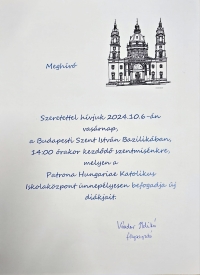 Meghívó
Szeretettel hívjuk 2024.10.6-án
vasárnap,
a Budapesti Szent István Bazilikában,
14:00 órakor kezdődő szentmisénkre,
melyen a
Patrona Hungariae Katolikus
Iskolaközpont ünnepélyesen befogadja új
diákjait.
főigazgató